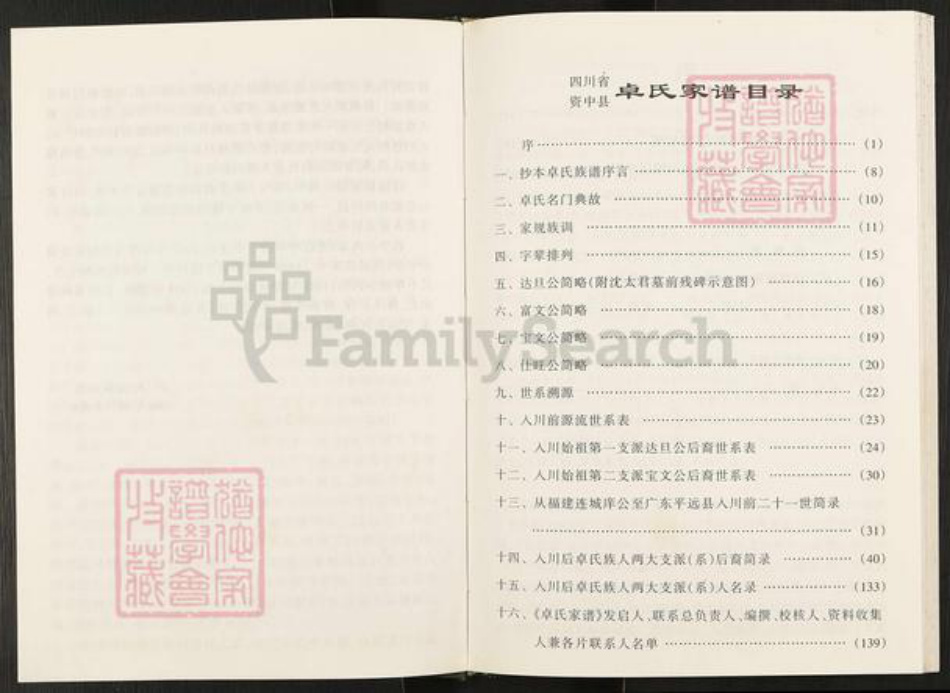 四川省
资中县
卓氏家谱目录
序 …………………………………… (1)
一、抄本卓氏族谱序言 …………………………………… (8)
二、卓氏名门典故 …………………………………… (10)
三、家规族训 …………………………………… (11)
四、字辈排列 …………………………………… (15)
五、达旦公简略(附沈太君墓前残碑示意图) ……………… (16)
六、富文公简略 …………………………………… (18)
七、宝文公简略 …………………………………… (19)
八、仕旺公简略 …………………………………… (20)
九、世系溯源 …………………………………… (22)
十、入川前源流世系表 …………………………………… (23)
十一、入川始祖第一支派达旦公后裔世系表 ……………… (24)
十二、入川始祖第二支派宝文公后裔世系表 ……………… (30)
十三、从福建连城庠公至广东平远县入川前二十一世简录
…………………………………… (31)
十四、入川后卓氏族人两大支派(系)后裔简录 ……………… (40)
十五、入川后卓氏族人两大支派(系)人名录 ……………… (133)
十六、《卓氏家谱》发启人、联系总负责人、编撰、校核人、资料收集
人兼各片联系人名单 …………………………………… (139)
FamilySearch
猶他家
譜學會
收藏
猶他家
譜學會
收藏